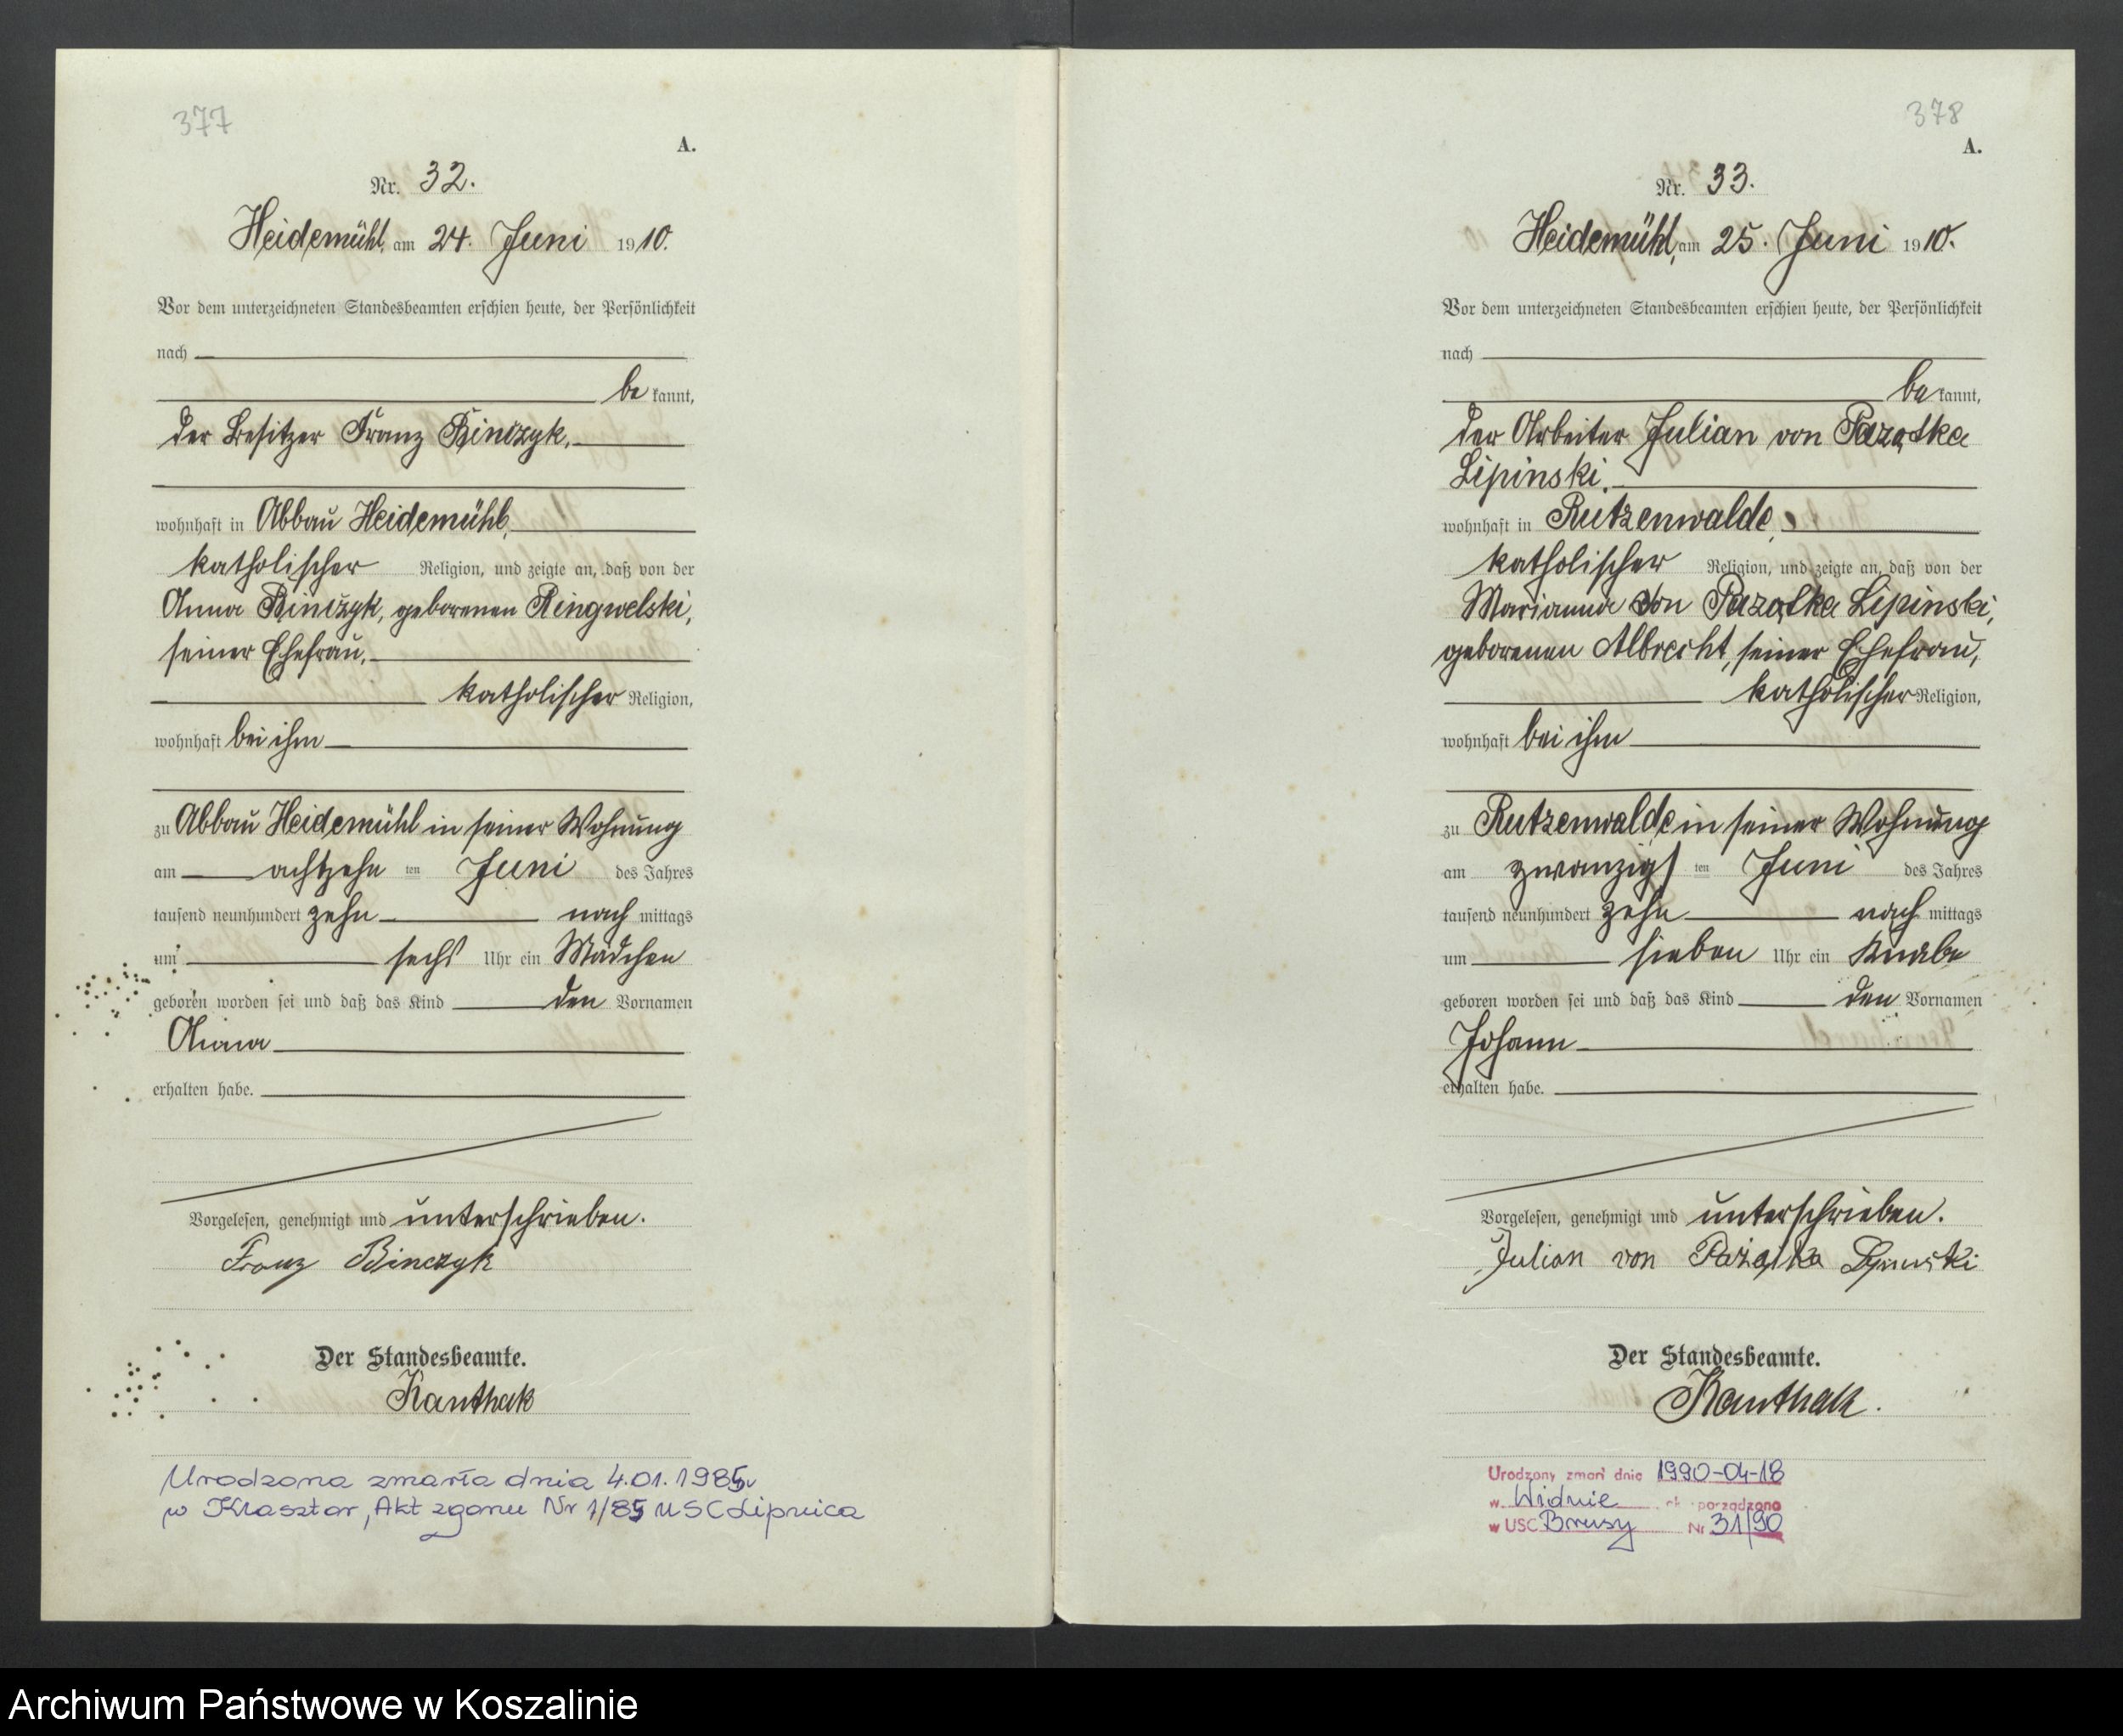 377
A.
Nr. 32.
Heidemühl, am 24. Juni 1910.
Vor dem unterzeichneten Standesbeamten erschien heute, der Persönlichkeit
nach
be kannt,
der Besitzer Franz Binczyk,
wohnhaft in Abbau Heidemühl,
katholischer Religion, und zeigte an, daß von der
Anna Binczyk, geborenen Ringwelski,
seiner Ehefrau,
katholischer Religion,
wohnhaft bei ihm
zu Abbau Heidemühl in seiner Wohnung
am achtzehn ten Juni des Jahres
tausend neunhundert zehn nach mittags
um sechs Uhr ein Mädchen
geboren worden sei und daß das Kind den Vornamen
Anna
erhalten habe.
Vorgelesen, genehmigt und unterschrieben.
Franz Binczyk
Der Standesbeamte.
Kanthak
Urodzona zmarła dnia 4.01.1985
w Klasztor, Akt zgonu Nr 1/85 USC Lipnica
378
A.
Nr. 33.
Heidemühl, am 25. Juni 1910.
Vor dem unterzeichneten Standesbeamten erschien heute, der Persönlichkeit
nach
be kannt,
der Arbeiter Julian von Pazątka
Lipinski,
wohnhaft in Rutzenwalde,
katholischer Religion, und zeigte an, daß von der
Marianna von Pazątka Lipinski,
geborenen Albrecht, seiner Ehefrau,
katholischer Religion,
wohnhaft bei ihm
zu Rutzenwalde in seiner Wohnung
am zwanzigs ten Juni des Jahres
tausend neunhundert zehn nach mittags
um sieben Uhr ein Knabe
geboren worden sei und daß das Kind den Vornamen
Johann
erhalten habe.
Vorgelesen, genehmigt und unterschrieben.
Julian von Pażątka Lipinski
Der Standesbeamte.
Kanthak.
Urodzony zmarł dnia 1990-04-18
w Widnie akt sporządzono
w USC Brusy Nr 31/90
Archiwum Państwowe w Koszalinie